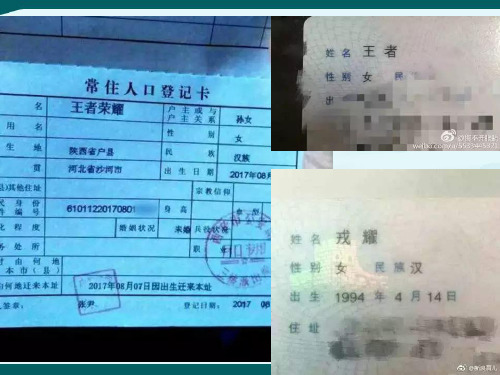 常住人口登记卡
名 王者荣耀 户主或与户主关系 孙女
用名 性别 女
生地 陕西省户县 民族 汉族
贯 河北省沙河市 出生日期 2017年08月
县)其他住址 宗教信仰
民身份件编号 61011220170801 身高 血型
化程度 婚姻状况 未婚 兵役状况
务处所
时由何地本市(县)
何地迁来本址 2017年08月07日因出生迁来本址
人签章: 登记日期: 2017 08
姓名 王者
性别 女 民
出
姓名 戎耀
性别 女 民族 汉
出生 1994 年 4 月 14 日
住址